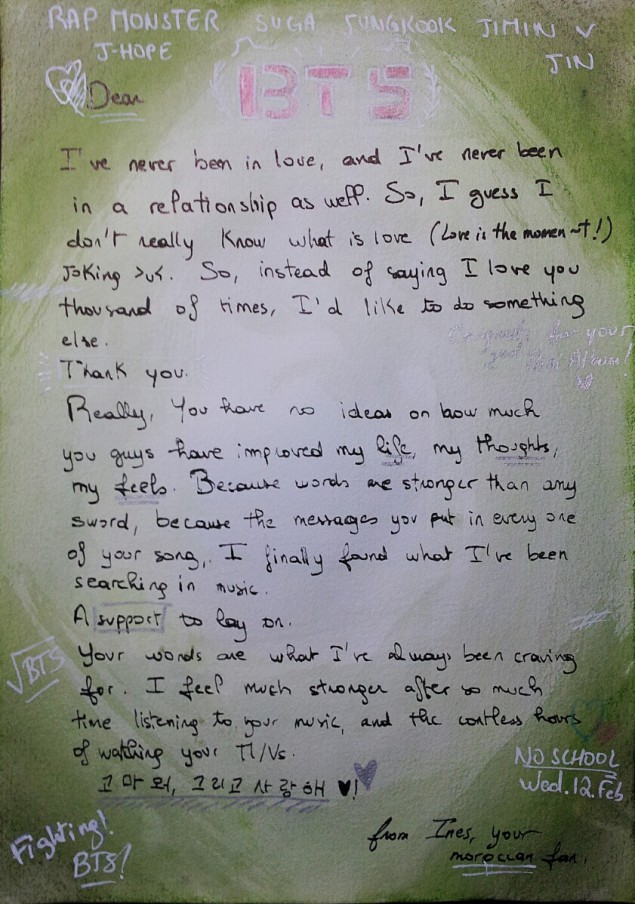 RAP MONSTER SUGA JUNGKOOK JIMIN V
J-HOPE JIN
Dear BTS
I've never been in love, and I've never been
in a relationship as well. So, I guess I
don't really know what is love (Love is the moment!)
Joking >u<. So, instead of saying I love you
thousand of times, I'd like to do something
else.
for your
Album!
Thank you.
Really, You have no ideas on how much
you guys have improved my life, my thoughts,
my feels. Because words are stronger than any
sword, because the messages you put in every one
of your song, I finally found what I've been
searching in music.
A support to lay on.
Your words are what I've always been craving
for. I feel much stronger after so much
time listening to your music, and the contless hours
of watching your M/Vs.
고마워, 그리고 사랑해 ♥!
√BTS
NO SCHOOL
Wed. 12. Feb
Fighting!
BTS!
from Ines, your
moroccan fan.